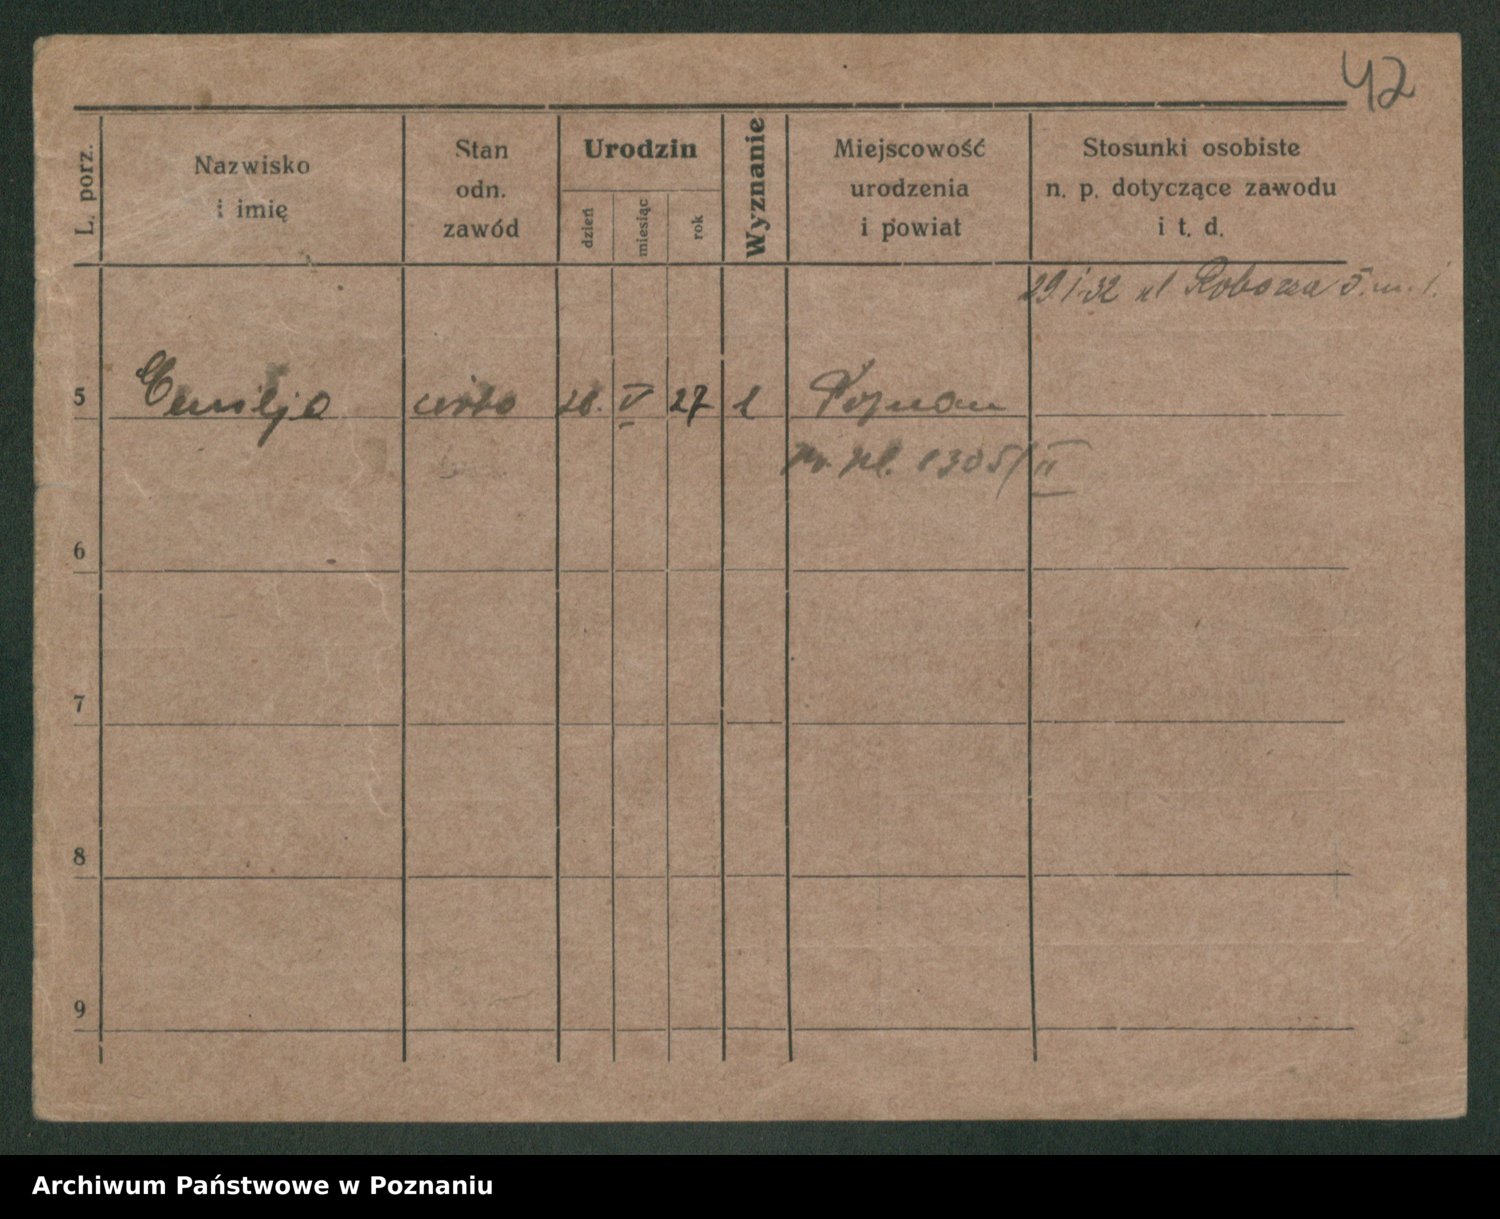 42
L. porz.
Nazwisko
i imię
Stan
odn.
zawód
Urodzin
dzień
miesiąc
rok
Wyznanie
Miejscowość
urodzenia
i powiat
Stosunki osobiste
n. p. dotyczące zawodu
i t. d.
29.1.32 ul 5 m. 1.
5 V 27 Poznań
1305/II
6
7
8
9
Archiwum Państwowe w Poznaniu